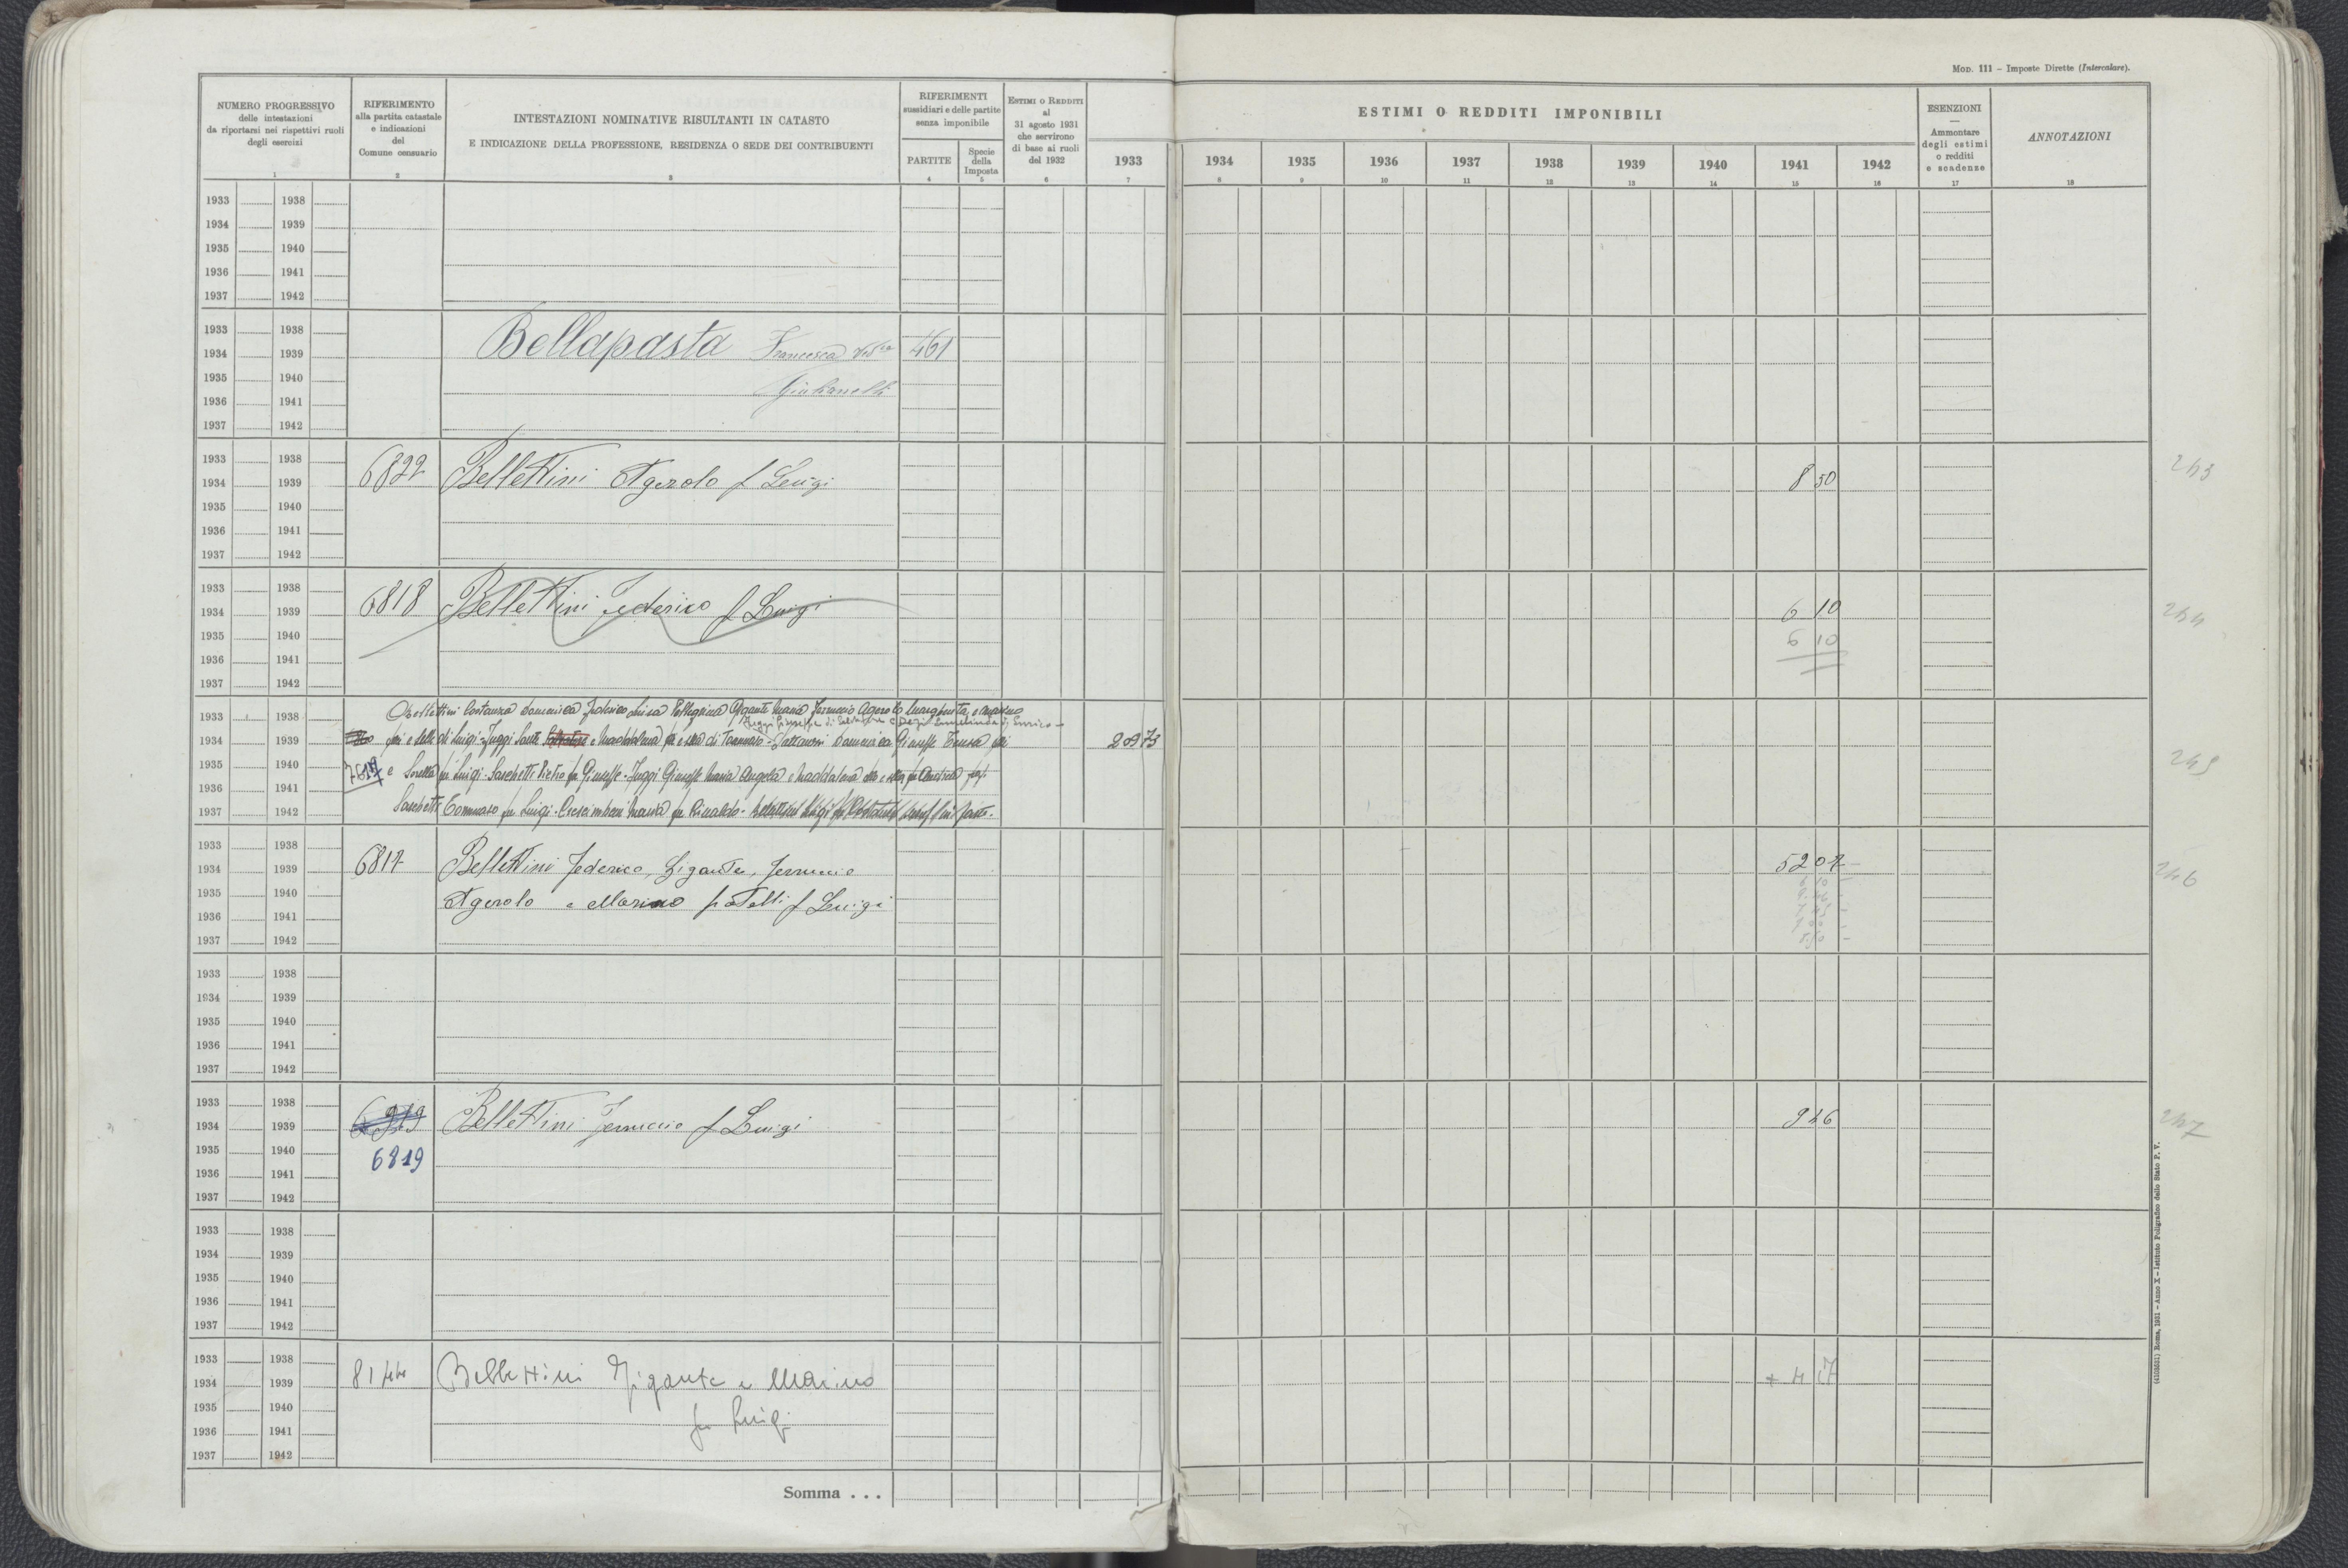 Mod. 111 – Imposte Dirette (Intercalare).
NUMERO PROGRESSIVO
delle intestazioni
da riportarsi nei rispettivi ruoli
degli esercizi
1
RIFERIMENTO
alla partita catastale
e indicazioni
del
Comune censuario
2
INTESTAZIONI NOMINATIVE RISULTANTI IN CATASTO
E INDICAZIONE DELLA PROFESSIONE, RESIDENZA O SEDE DEI CONTRIBUENTI
3
RIFERIMENTI
sussidiari e delle partite
senza imponibile
PARTITE
4
Specie
della
Imposta
5
Estimi o Redditi
al
31 agosto 1931
che servirono
di base ai ruoli
del 1932
6
ESTIMI O REDDITI IMPONIBILI
1933 1934 1935 1936 1937 1938 1939 1940 1941 1942
7 8 9 10 11 12 13 14 15 16
ESENZIONI
—
Ammontare
degli estimi
o redditi
e scadenze
17
ANNOTAZIONI
18
1933 1938
1934 1939
1935 1940
1936 1941
1937 1942
1933 1938
1934 1939 Bellapasta Francesca 461
1935 1940
1936 1941
1937 1942
1933 1938
1934 1939 6822 Bellettini Agerolo f Luigi 8 50 243
1935 1940
1936 1941
1937 1942
1933 1938
1934 1939 6818 Bellettini Federico f Luigi 6 10 244
1935 1940 6 10
1936 1941
1937 1942
1933 1938 Bellettini Costanza Domenica Federico Luisa Pellegrina Gigante Maria Ferruccio Agerolo Margherita e Marino
1934 1939 di Luigi
1935 1940 e Sorella fu Luigi - Sacchetti Pietro fu Giuseppe - Fuggi Giuseppe Maria Angela e Maddalena 245
1936 1941
1937 1942 Sacchetti Tommaso fu Luigi - Crescimbeni Maria fu Rinaldo
1933 1938
1934 1939 6817 Bellettini Federico, Gigante, Ferruccio 52 07 246
1935 1940 Agerolo e Marino fratelli f Luigi
1936 1941
1937 1942
1933 1938
1934 1939
1935 1940
1936 1941
1937 1942
1933 1938
1934 1939 Bellettini Ferruccio f Luigi 9 46 247
1935 1940 6819
1936 1941
1937 1942
1933 1938
1934 1939
1935 1940
1936 1941
1937 1942
1933 1938
1934 1939 8144 Bellettini Gigante e Marino + 4 17
1935 1940 fu Luigi
1936 1941
1937 1942
Somma . . .
(4103531) Roma, 1931 – Anno X – Istituto Poligrafico dello Stato P. V.